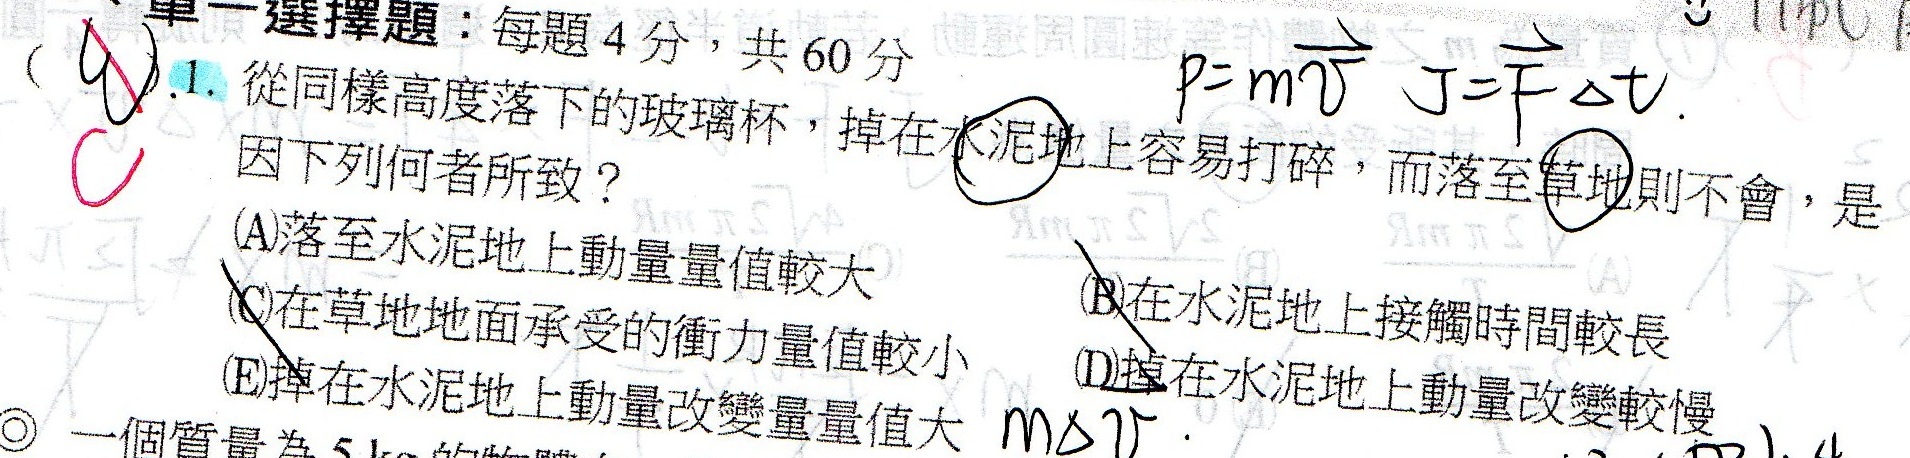 單一選擇題：每題 4 分，共 60 分
P=mv J=FΔt.
( ).1. 從同樣高度落下的玻璃杯，掉在水泥地上容易打碎，而落至草地則不會，是
C
因下列何者所致？
(A)落至水泥地上動量量值較大
(B)在水泥地上接觸時間較長
(C)在草地地面承受的衝力量值較小
(D)掉在水泥地上動量改變較慢
(E)掉在水泥地上動量改變量量值大 mΔv.
◎ 一個質量為 5 kg 的物體